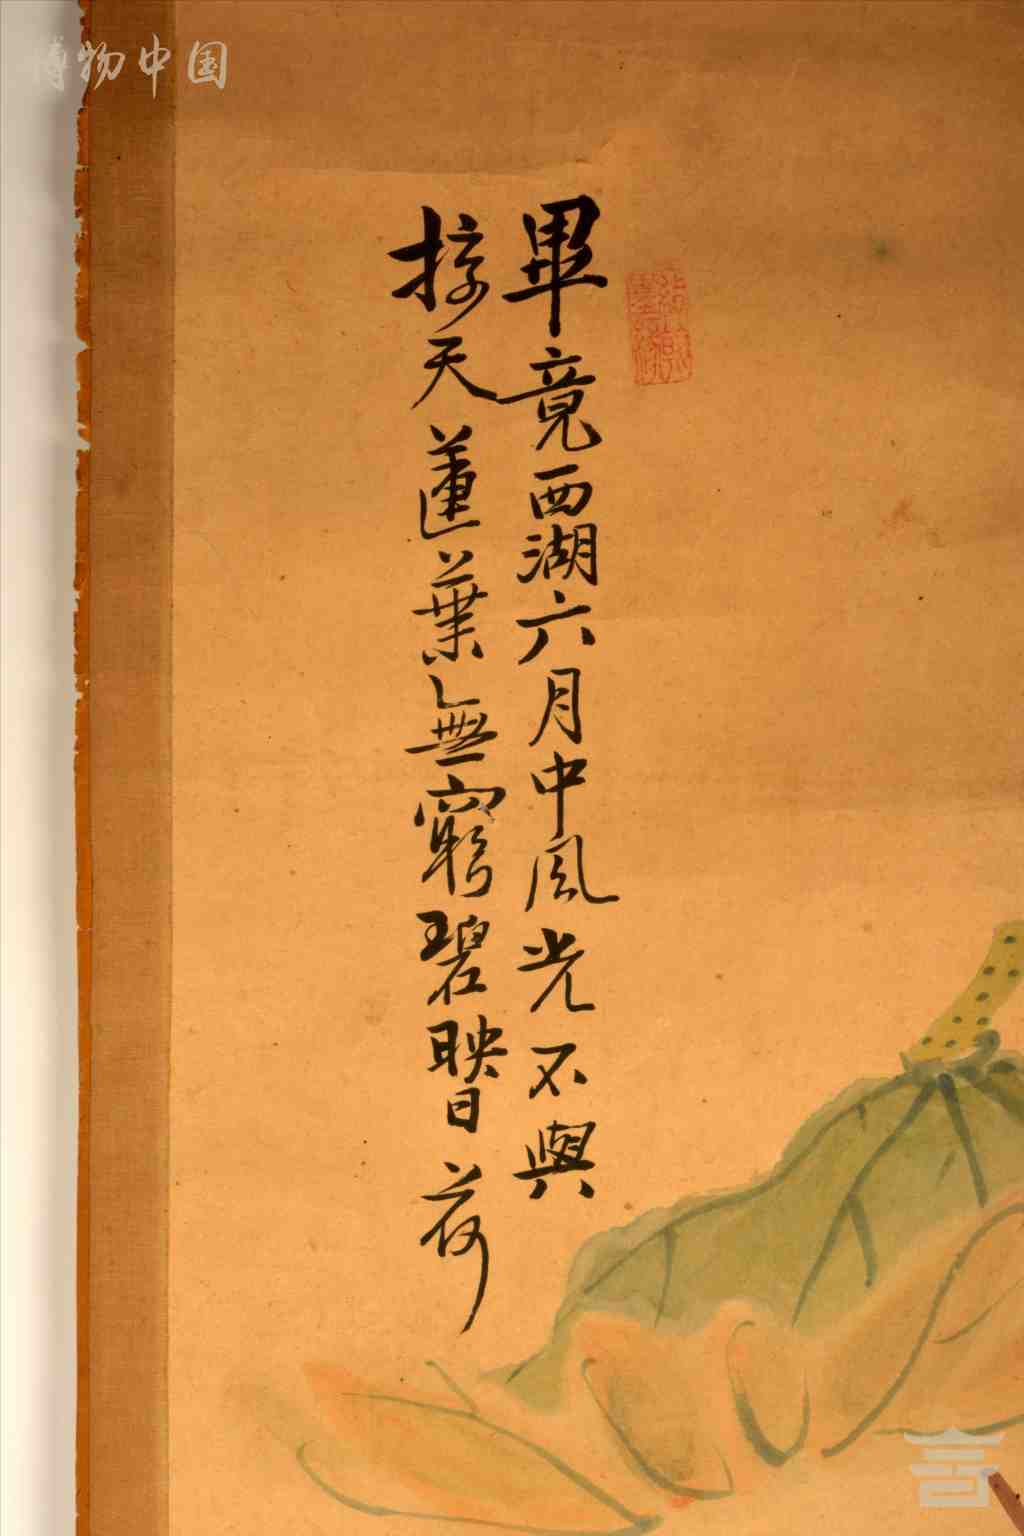 博物中国
畢竟西湖六月中風光不與
接天蓮葉無窮碧映日荷